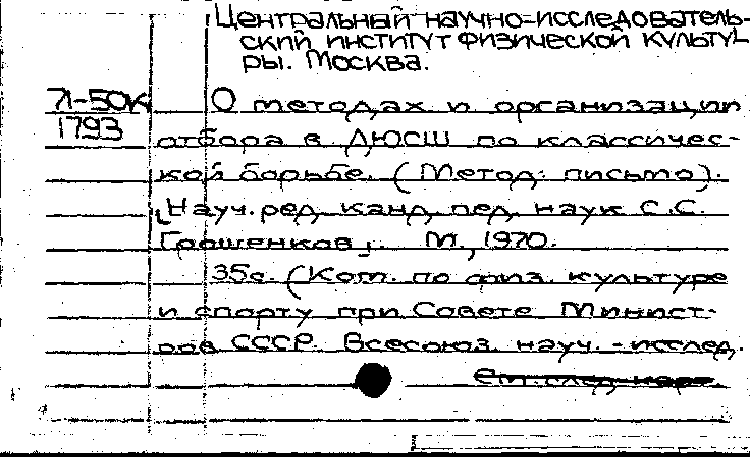 Центральный научно-исследователь-
ский институт физической культу
ры. Москва.
71-50к О методах и организации
1793 отбора в ДЮСШ по классичес-
кой борьбе. (Метод. письмо).
[Науч. ред. канд. пед. наук С.С.
Грошенков]. М., 1970.
35с. (Ком. по физ. культуре
и спорту при Совете Минист-
ров СССР. Всесоюз. науч.-исслед.
См. след. карт.